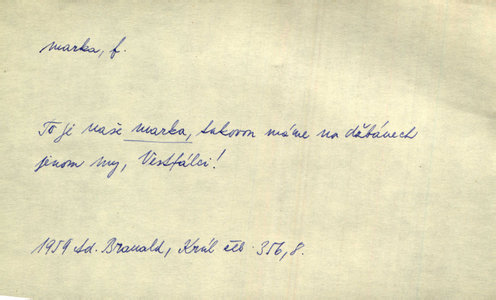 marka, f.
To je naše marka, takovou máme na džbánech
jenom my, Vestfálci!
1959 Ad. Branald, Král 356, 8.